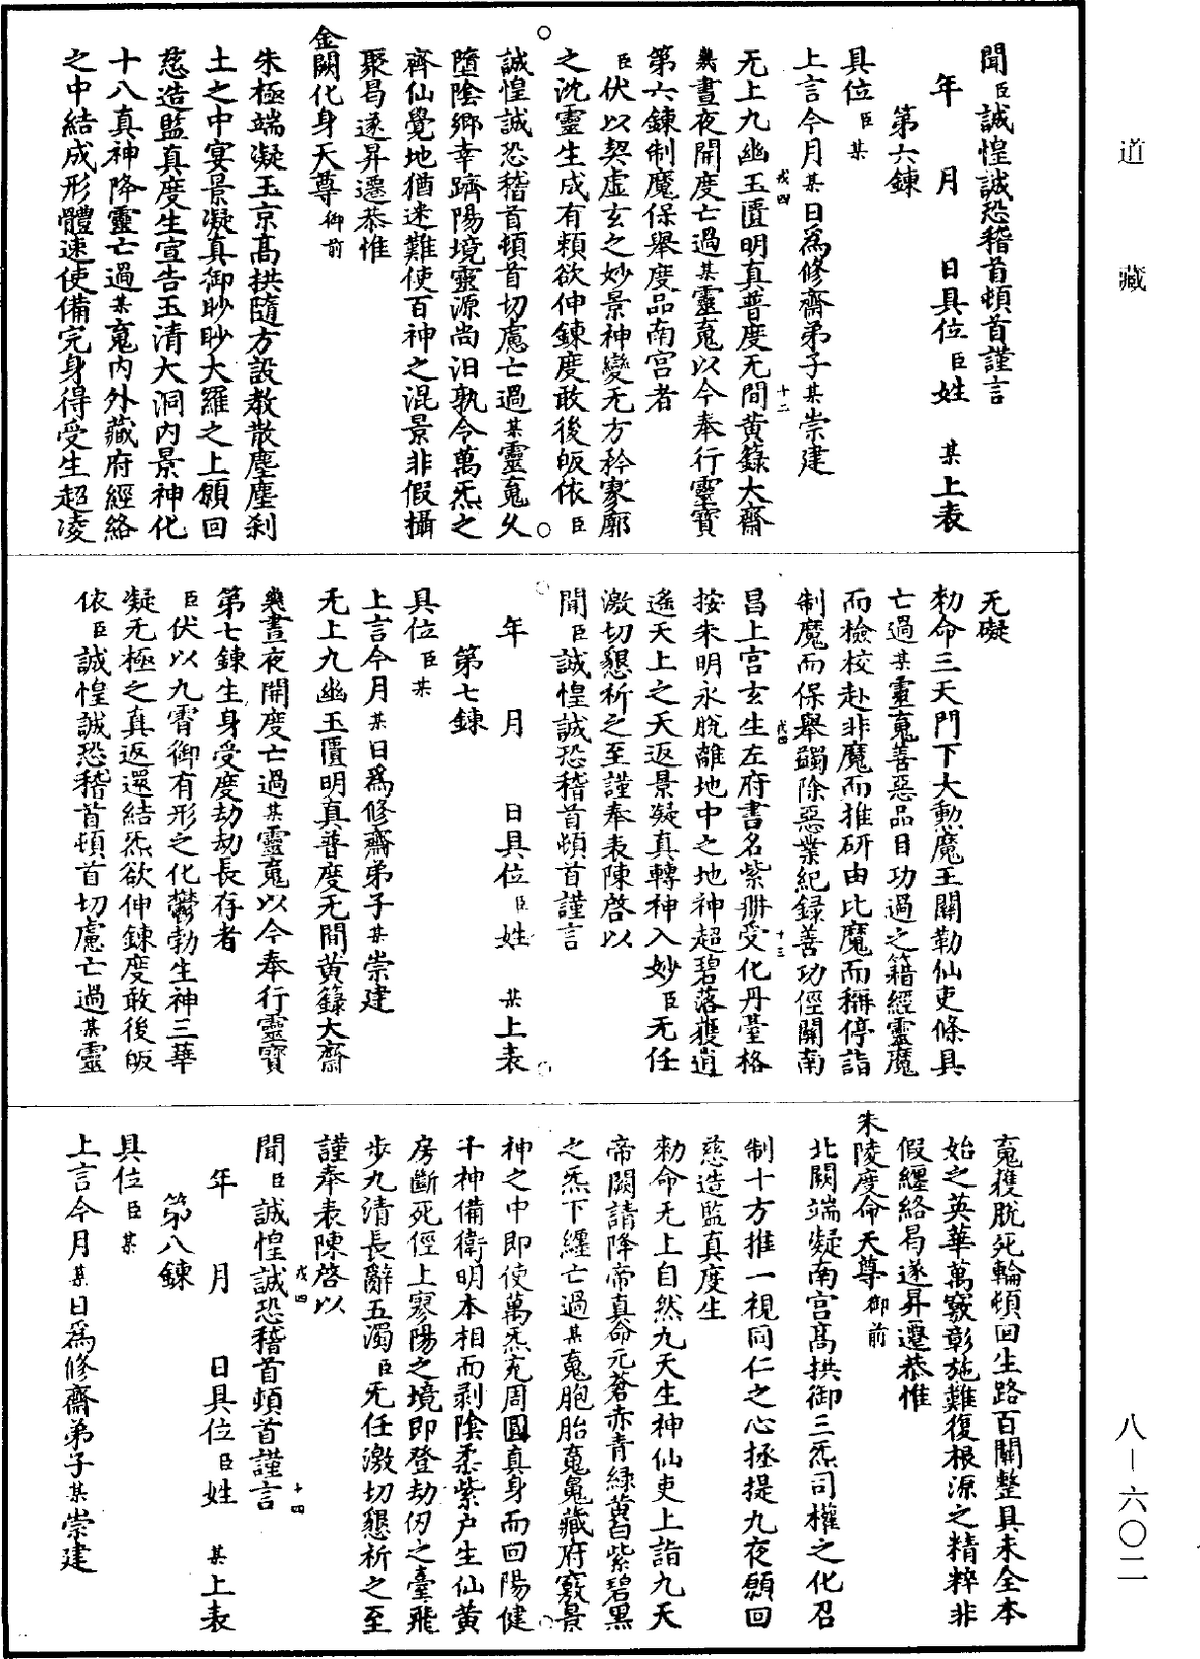 道藏
八—六〇二
聞臣誠惶誠恐稽首頓首謹言
年　月　日具位臣姓　某上表
第六鍊
具位臣某
上言今月某日爲修齋弟子某崇建
无上九幽玉匱明真普度无間黄籙大齋
幾晝夜開度亡過某靈䰟以今奉行靈寶
第六鍊制魔保舉度品南宫者
臣伏以契虚玄之妙景神變无方矜寥廓
之沈靈生成有賴欲伸鍊度敢後皈依臣
誠惶誠恐稽首頓首切慮亡過某靈䰟久
墮陰鄉幸躋陽境靈源尚汩孰令萬炁之
齊仙覺地猶迷難使百神之混景非假攝
聚曷遂昇遷恭惟
金闕化身天尊御前
朱極端凝玉京高拱隨方設教散塵塵刹
土之中宴景凝真御眇眇大羅之上願回
慈造監真度生宣告玉清大洞内景神化
十八真神降靈亡過某䰟内外藏府經絡
之中結成形體速使備完身得受生超凌
戎四
十二
无礙
勑命三天門下大勲魔王關勒仙吏條具
亡過某靈䰟善惡品目功過之籍經靈魔
而檢校赴非魔而推研由比魔而稱停詣
制魔而保舉蠲除惡業紀録善功徑關南
昌上宫玄生左府書名紫册受化丹臺格
按朱明永脱離地中之地神超碧落獲逍
遙天上之天返景凝真轉神入妙臣无任
激切懇祈之至謹奉表陳啓以
聞臣誠惶誠恐稽首頓首謹言
年　月　日具位臣姓　某上表
第七鍊
具位臣某
上言今月某日爲修齋弟子某崇建
无上九幽玉匱明真普度无間黄籙大齋
幾晝夜開度亡過某靈䰟以今奉行靈寶
第七鍊生身受度劫劫長存者
臣伏以九霄御有形之化鬱勃生神三華
凝无極之真返還結炁欲伸鍊度敢後皈
依臣誠惶誠恐稽首頓首切慮亡過某靈
戎四
十三
䰟獲脱死輪頓回生路百關整具未全本
始之英華萬竅彰施難復根源之精粹非
假纏絡曷遂昇遷恭惟
朱陵度命天尊御前
北闕端凝南宫高拱御三炁司權之化召
制十方推一視同仁之心拯提九夜願回
慈造監真度生
勑命无上自然九天生神仙吏上詣九天
帝闕請降帝真命元蒼赤青緑黄白紫碧黒
之炁下纏亡過某䰟胞胎䰟䰟藏府竅景
神之中即使萬炁充周圓真身而回陽健
千神備衛明本相而剥陰柔紫户生仙黄
房斷死徑上寥陽之境即登劫仞之臺飛
步九清長辭五濁臣无任激切懇祈之至
謹奉表陳啓以
聞臣誠惶誠恐稽首頓首謹言
年　月　日具位臣姓　某上表
第八鍊
具位臣某
上言今月某日爲修齋弟子某崇建
戎四
十四